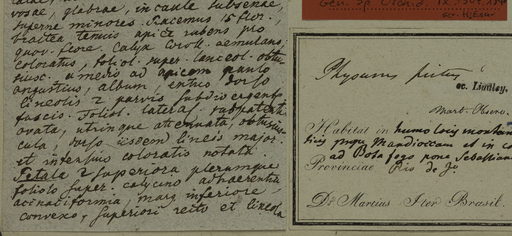 vosae, glabrae, in caule subsenae,
superne minores. Racemus 15 flor.,
bractea tenuis apice rubens pro
quov. flore. Calyx coroll. aemulans,
coloratus, foliol. super. lanceol. obtu
fusc. humeris ad apicem paulo
angustius, album, intus dorso
lineolis 2 parvis subdivergent
fasciis. Foliol. lateral. subpatent.
ovata, utrinque attenuata, obtusius-
cula, dorso iisdem lineis major.
et intensius coloratis notata.
Petala 2 superiora plerumque
foliolo super. calycino adhaerentia
acinaciformia, marg. inferiore
convexo, superiori recto et lineola
Gen. Sp. Orchid.
Physurus pictus
ec. Lindley.
Mart. Observ.
Habitat in humo locis montan
tius prope Mandioccam et in co
ad Botafogo pone Sebastian
Provinciae Rio de J.
Dr. Martius Iter Brasil.